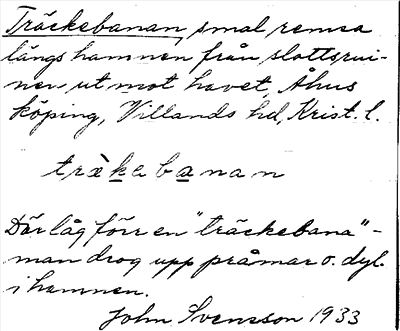 Träckebanan, smal remsa
längs hamnen från slottsrui-
nen ut mot havet, Åhus
köping, Villands hd, Krist. l.
träkebanan
Där låg förr en "träckebana" -
man drog upp pråmar o. dyl.
i hamnen.
John Svensson 1933